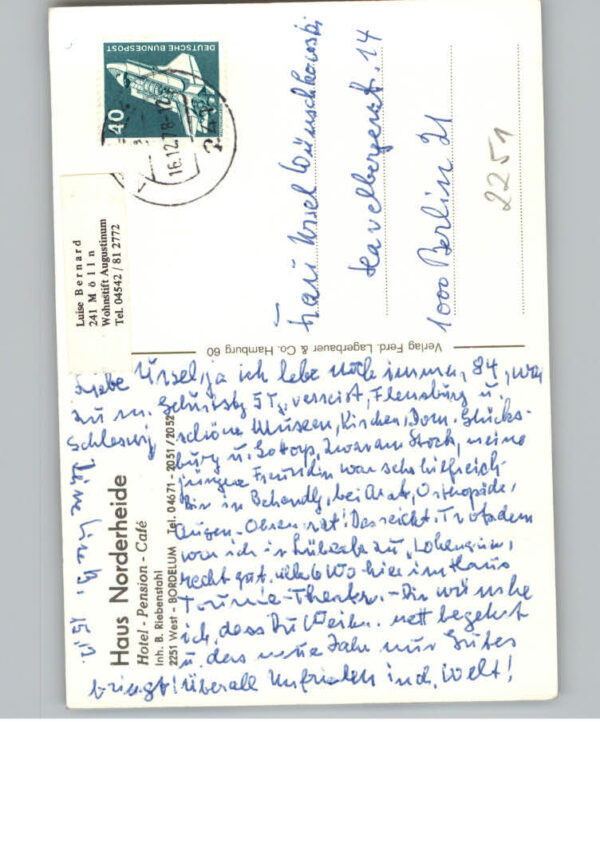 DEUTSCHE BUNDESPOST
40
16.12.78-10
Luise Bernard
241 Mölln
Wohnstift Augustinum
Tel. 04542 / 81 2772
Frau Ursel Wünschkowski
Havelbergerstr. 14
1000 Berlin 21
2251
Verlag Ferd. Lagerbauer & Co. Hamburg 60
Haus Norderheide
Hotel - Pension - Café
Inh. B. Riebenstahl
2251 West - BORDELUM Tel. 04671 - 2051 / 2052
Liebe Ursel, ja ich lebe noch immer, 84, war
zu m. Geburtstg 5 T. verreist, Flensburg u.
Schleswig schöne Museen, Kirchen, Dom, Glücks-
burg u. Gotorp, zwar am Stock, meine
jüngere Freundin war sehr hilfreich.
Bin in Behandlg, bei Arzt, Orthopäde,
Augen-Ohrenarzt! Das reicht. Trotzdem
war ich in Lübeck zu "Lohengrin",
recht gut, alle 6 Wo hier im Haus
Tournee-Theater. - Dir wünsche
ich, dass Du Weihn. nett begehst
u. das neue Jahr nur Gutes
bringt! überall Unfrieden in d. Welt!
15.12.